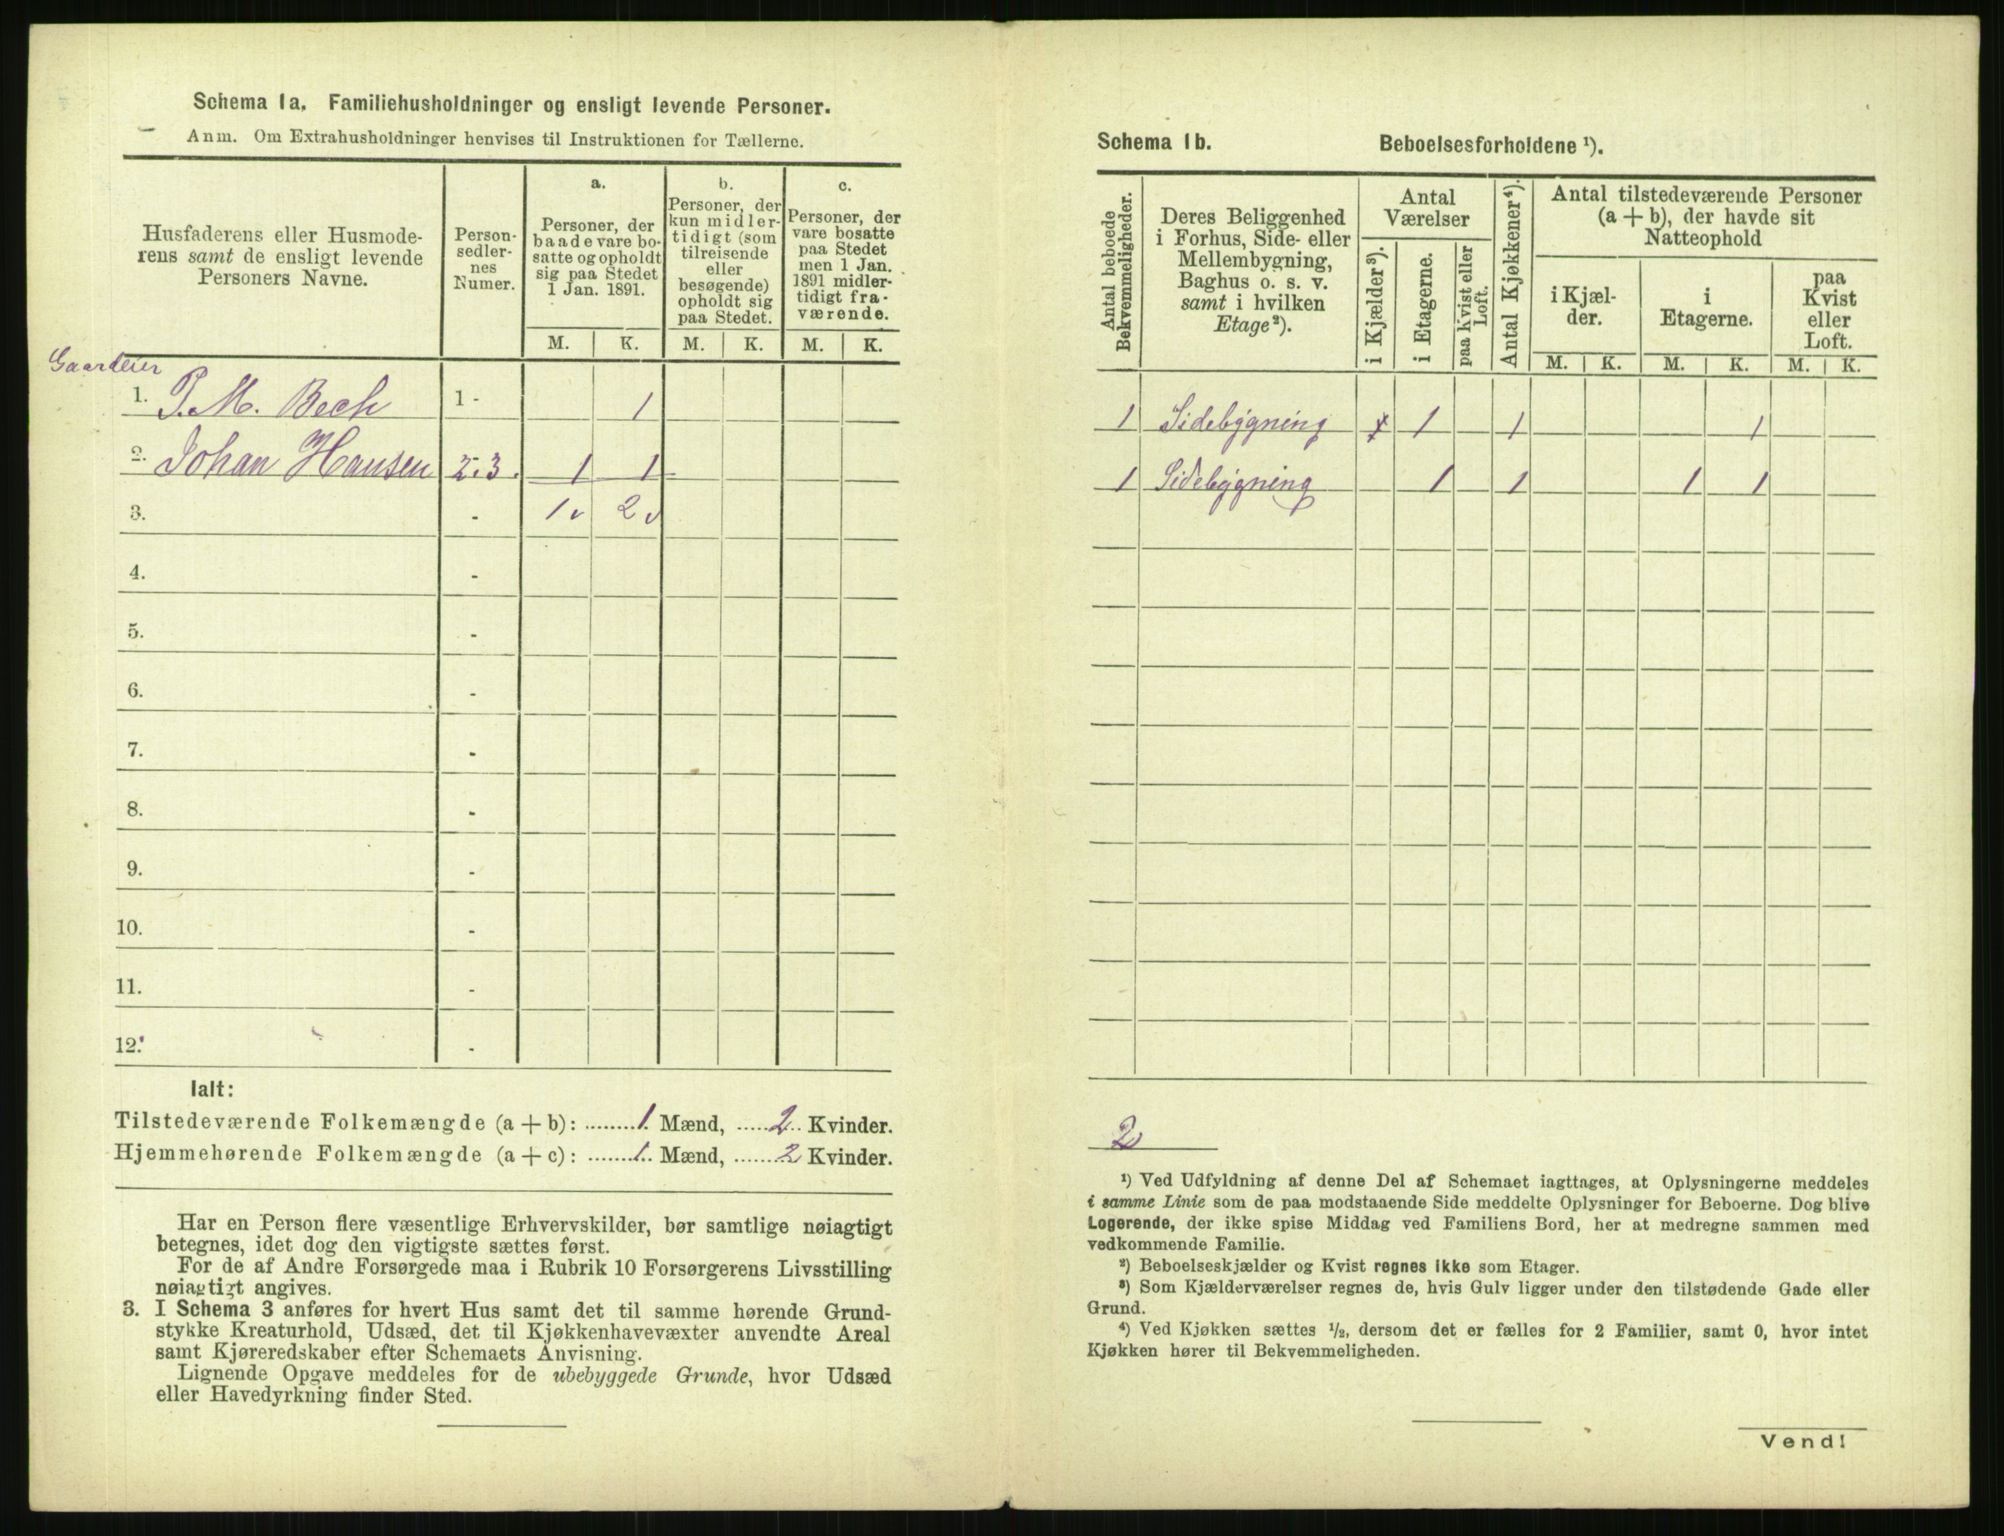 Schema 1a. Familiehusholdninger og ensligt levende Personer.
Anm. Om Extrahusholdninger henvises til Instruktionen for Tællerne.
Husfaderens eller Husmode-
rens samt de ensligt levende
Personers Navne.
Person-
sedler-
nes
Numer.
a.
Personer, der
baade vare bo-
satte og opholdt
sig paa Stedet
1 Jan. 1891.
b.
Personer, der
kun midler-
tidigt (som
tilreisende
eller
besøgende)
opholdt sig
paa Stedet.
c.
Personer, der
vare bosatte
paa Stedet
men 1 Jan.
1891 midler-
tidigt fra-
værende.
M. K. M. K. M. K.
Gaardeier
1. P. M. Bech 1 - 1
2. Johan Hansen 2.3. 1 1
3. - 1 2
4. -
5. -
6. -
7. -
8. -
9. -
10. -
11. -
12. -
Ialt:
Tilstedeværende Folkemængde (a + b): ........1. Mænd, .....2.. Kvinder.
Hjemmehørende Folkemængde (a + c): .......1.. Mænd, .......2 Kvinder.
Har en Person flere væsentlige Erhvervskilder, bør samtlige nøiagtigt
betegnes, idet dog den vigtigste sættes først.
For de af Andre Forsørgede maa i Rubrik 10 Forsørgerens Livsstilling
nøiagtigt angives.
3. I Schema 3 anføres for hvert Hus samt det til samme hørende Grund-
stykke Kreaturhold, Udsæd, det til Kjøkkenhavevæxter anvendte Areal
samt Kjøreredskaber efter Schemaets Anvisning.
Lignende Opgave meddeles for de ubebyggede Grunde, hvor Udsæd
eller Havedyrkning finder Sted.
Schema 1b. Beboelsesforholdene ¹).
Antal beboede
Bekvemmeligheder.
Deres Beliggenhed
i Forhus, Side- eller
Mellembygning,
Baghus o. s. v.
samt i hvilken
Etage²).
Antal
Værelser
i Kjælder³).
i Etagerne.
paa Kvist eller
Loft.
Antal Kjøkkener⁴).
Antal tilstedeværende Personer
(a + b), der havde sit
Natteophold
i Kjæl-
der.
i
Etagerne.
paa
Kvist
eller
Loft.
M. K. M. K. M. K.
1 Sidebygning 1 1 1
1 Sidebygning 1 1 1 1
2
¹) Ved Udfyldning af denne Del af Schemaet iagttages, at Oplysningerne meddeles
i samme Linie som de paa modstaaende Side meddelte Oplysninger for Beboerne. Dog blive
Logerende, der ikke spise Middag ved Familiens Bord, her at medregne sammen med
vedkommende Familie.
²) Beboelseskjælder og Kvist regnes ikke som Etager.
³) Som Kjælderværelser regnes de, hvis Gulv ligger under den tilstødende Gade eller
Grund.
⁴) Ved Kjøkken sættes ½, dersom det er fælles for 2 Familier, samt 0, hvor intet
Kjøkken hører til Bekvemmeligheden.
Vend!